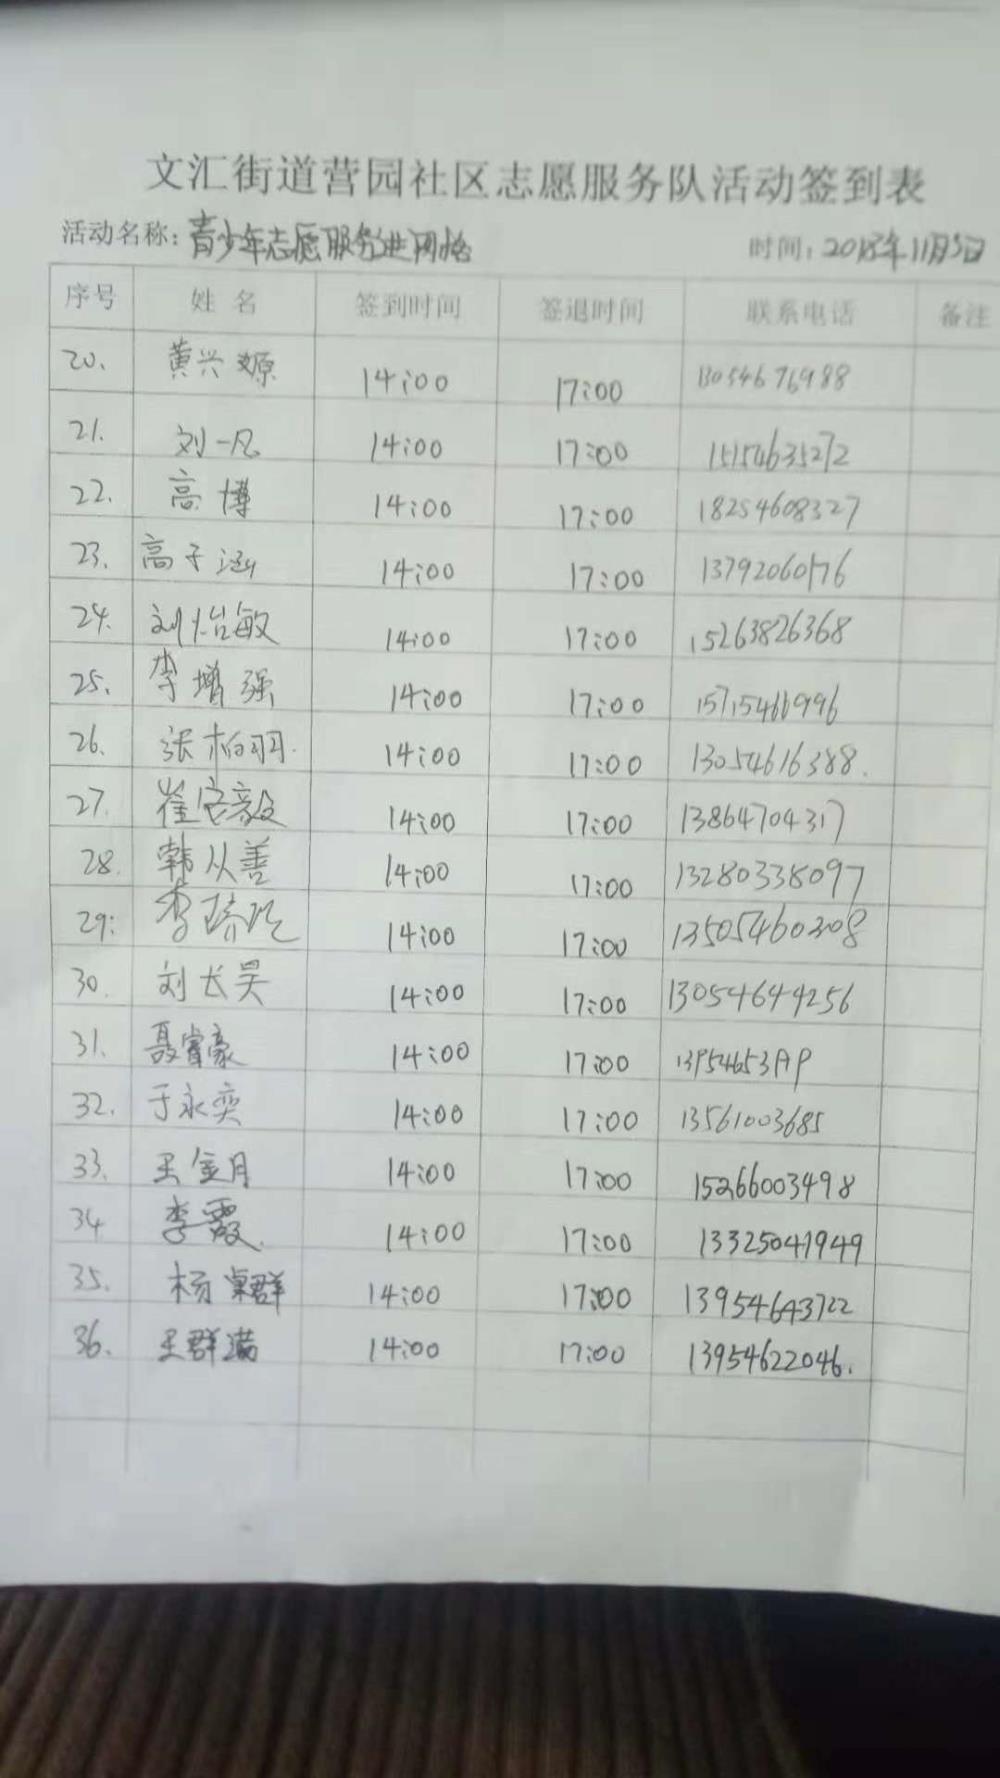 文汇街道营园社区志愿服务队活动签到表
活动名称：青少年志愿服务进网格 时间：2018年11月3日
序号 姓名 签到时间 签退时间 联系电话 备注
20. 黄兴源 14:00 17:00 13054676988
21. 刘一凡 14:00 17:00 15154635272
22. 高博 14:00 17:00 18254608327
23. 高子涵 14:00 17:00 13792060176
24. 刘怡敏 14:00 17:00 15263826368
25. 李增强 14:00 17:00 15715466996
26. 张柏羽. 14:00 17:00 13054616388.
27. 崔家毅 14:00 17:00 13864704317
28. 韩从善 14:00 17:00 13280338097
29: 李 14:00 17:00 13505460308
30. 刘长昊 14:00 17:00 13054644256
31. 聂睿豪 14:00 17:00
32. 于永奕 14:00 17:00 13561003685
33. 王金月 14:00 17:00 15266003498
34 李霞. 14:00 17:00 13325041949
35. 杨群 14:00 17:00 13954643722
36. 王群满 14:00 17:00 13954622046.